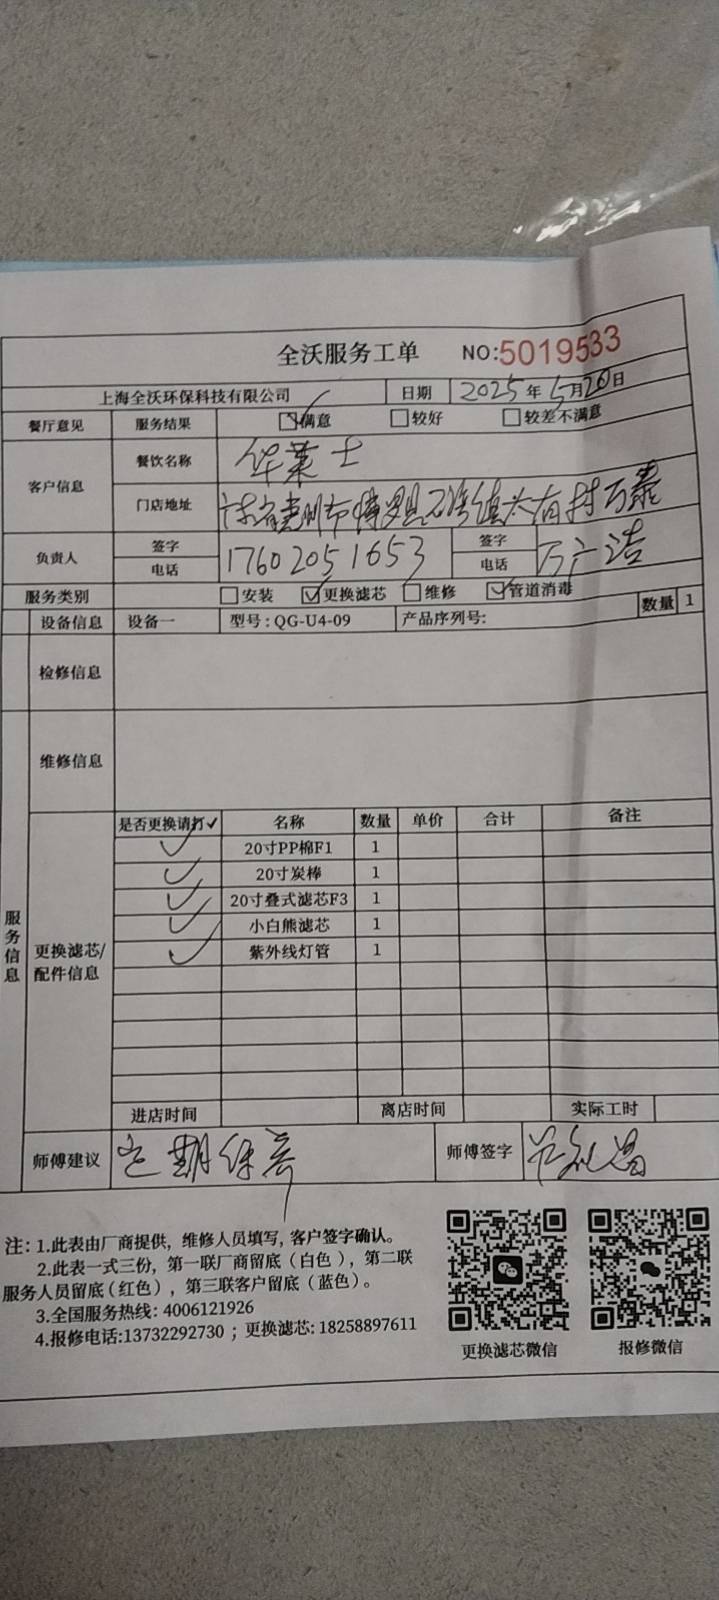 全沃服务工单 NO:5019533
上海全沃环保科技有限公司 日期 2025年5月20日
餐厅意见 服务结果 ☑满意 □较好 □较差不满意
客户信息 餐饮名称 华莱士
门店地址 省惠州市博罗县石湾镇太有村万泰
负责人 签字 签字
电话 17602051653 电话 万广洁
服务类别 □安装 ☑更换滤芯 □维修 ☑管道消毒
设备信息 设备一 型号:QG-U4-09 产品序列号: 数量 1
检修信息
维修信息
服务信息
更换滤芯/配件信息
是否更换请打✓ 名称 数量 单价 合计 备注
✓ 20寸PP棉F1 1
✓ 20寸炭棒 1
✓ 20寸叠式滤芯F3 1
✓ 小白熊滤芯 1
✓ 紫外线灯管 1
进店时间 离店时间 实际工时
师傅建议 定期保养 师傅签字
注: 1.此表由厂商提供, 维修人员填写, 客户签字确认。
2.此表一式三份, 第一联厂商留底(白色), 第二联
服务人员留底(红色), 第三联客户留底(蓝色)。
3.全国服务热线: 4006121926
4.报修电话:13732292730 ; 更换滤芯: 18258897611
更换滤芯微信 报修微信